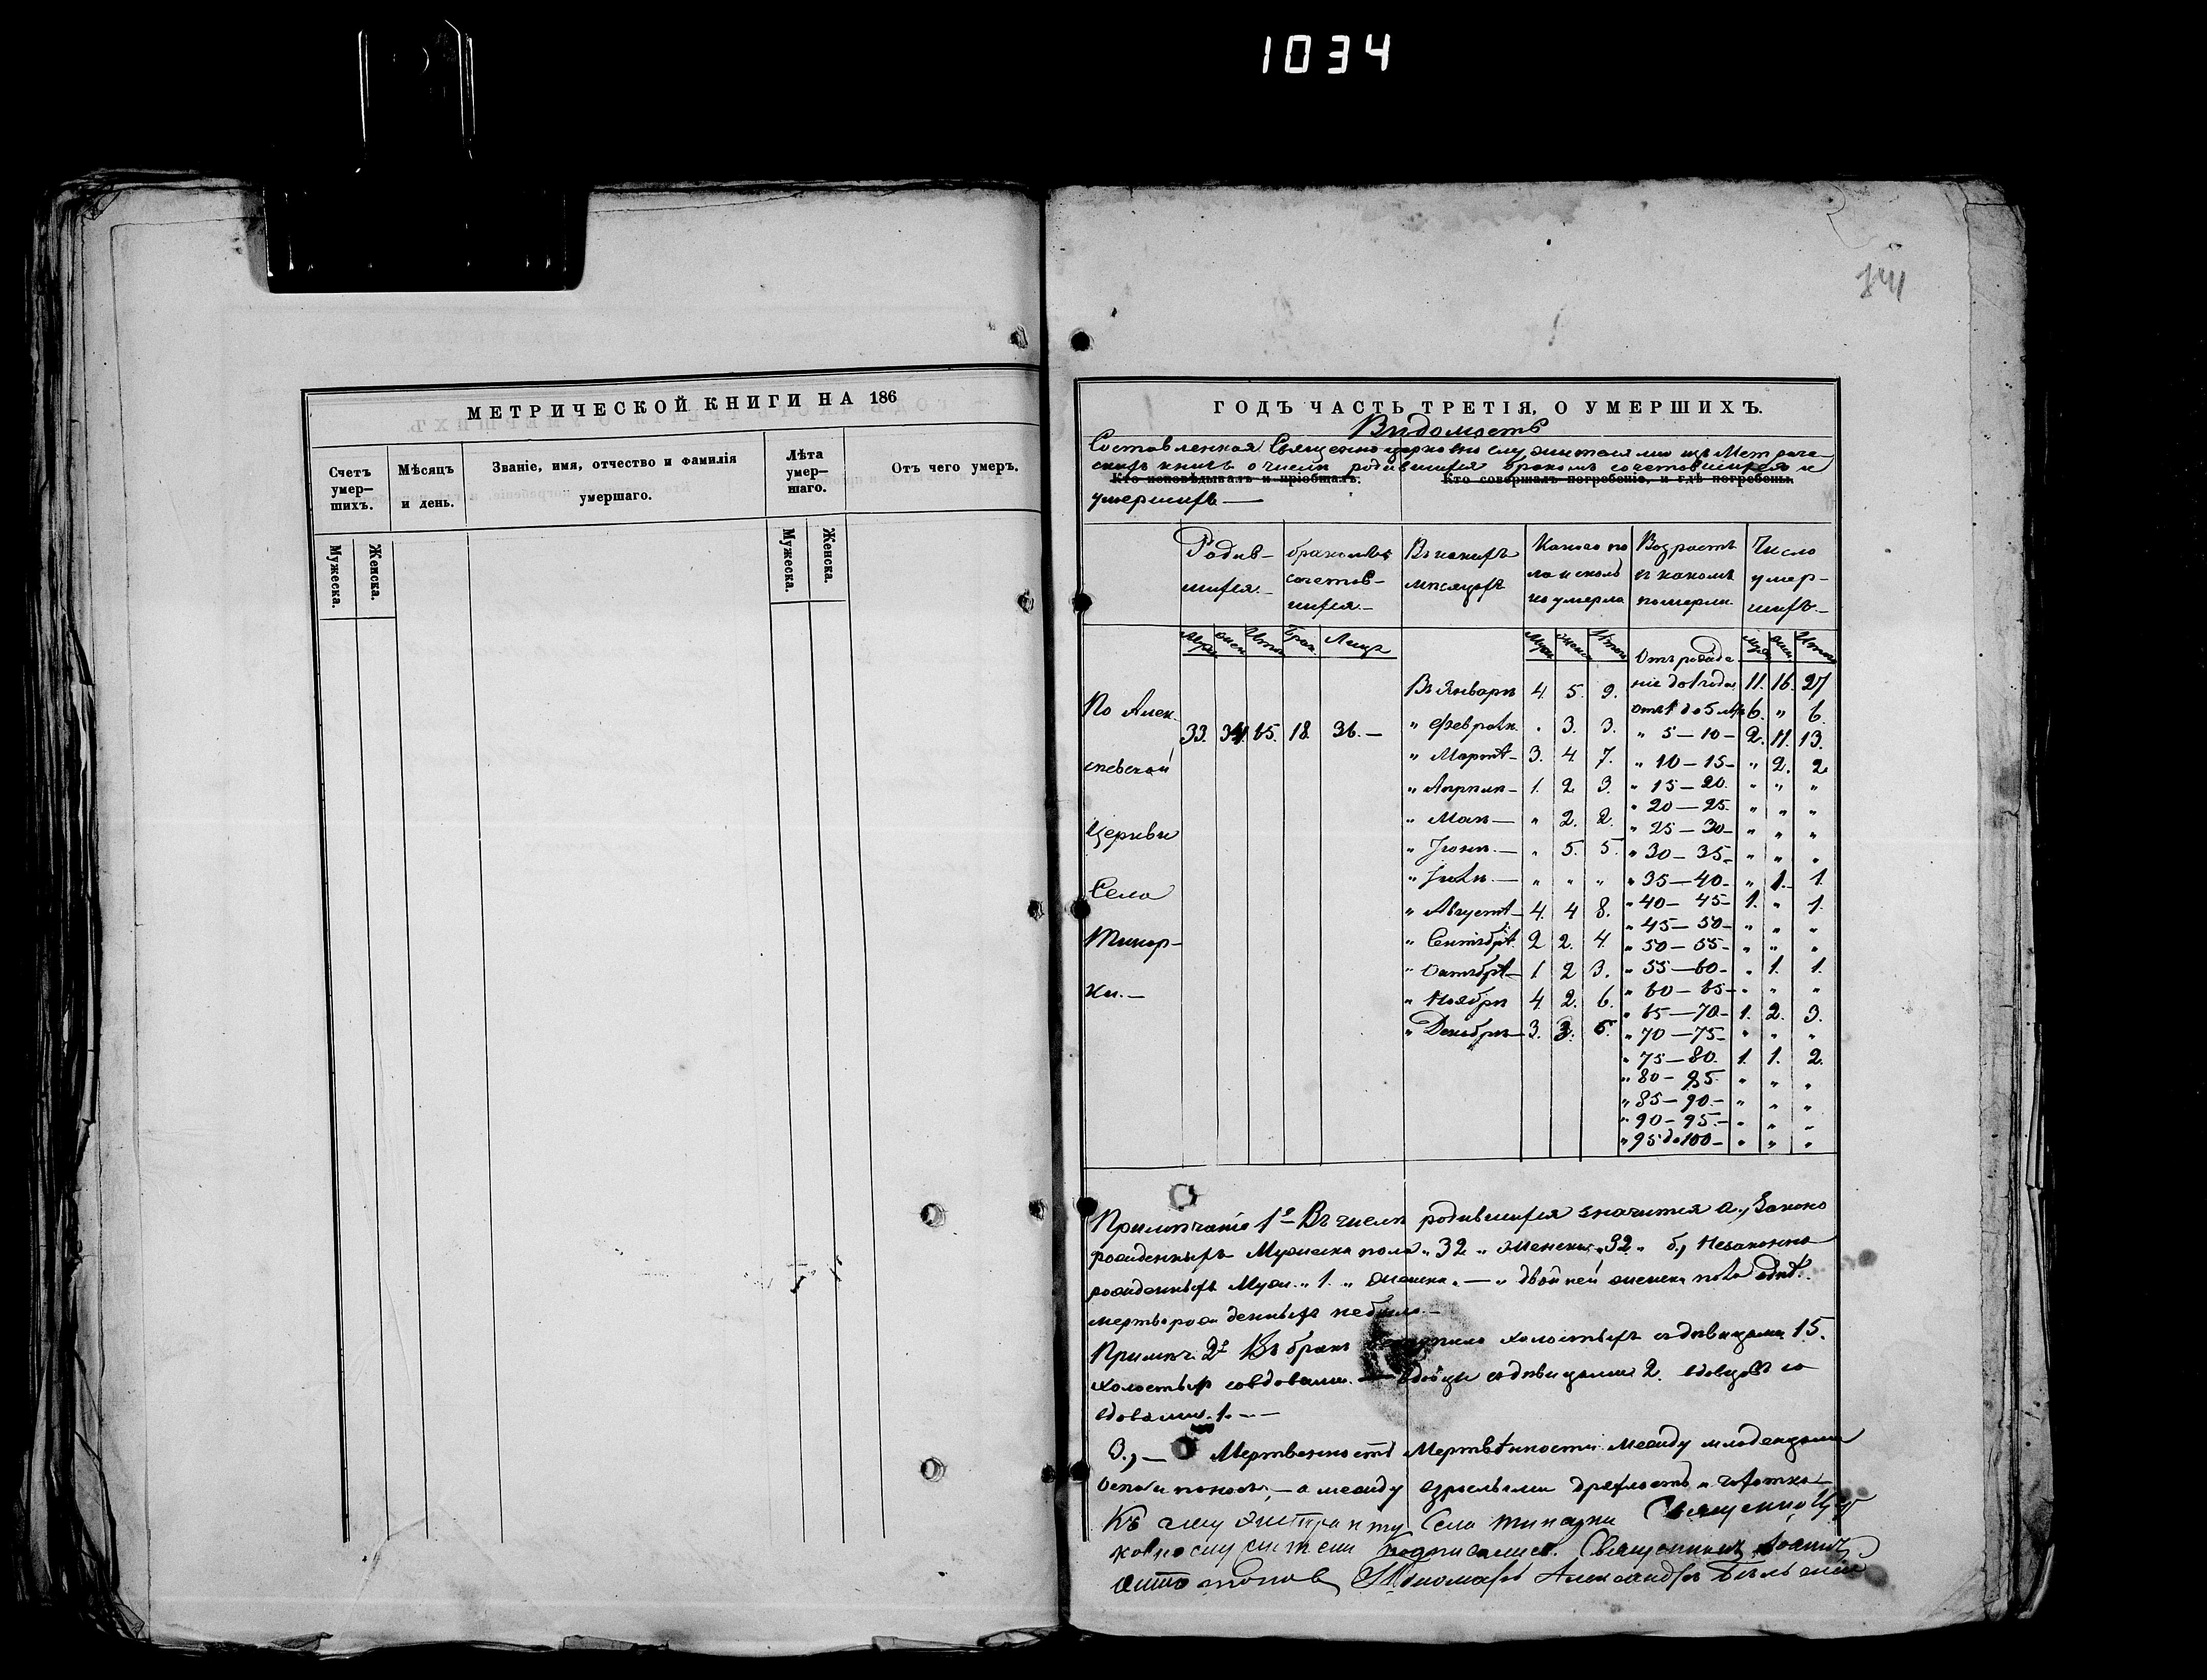 1034
141
МЕТРИЧЕСКОЙ КНИГИ НА 186
Счетъ умер-шихъ.
Мѣсяцъ и день.
Званіе, имя, отчество и фамилія умершаго.
Лѣта умер-шаго.
Отъ чего умеръ.
Мужеска. Женска.
Мужеска. Женска.
ГОДЪ ЧАСТЬ ТРЕТІЯ, О УМЕРШИХЪ.
Вѣдомость
Составленная Священно церковно служителями изъ Метриче-
скихъ книгъ о числѣ родившихся бракомъ сочетовшихся и
Кто исповѣдывалъ и пріобщалъ. Кто совершалъ погребеніе, и гдѣ погребены.
умершихъ —
Родив-шихся.-
бракомъ сочетов-шихся.-
Въ какихъ мѣсяцахъ
Какого по ла и сколь ко умерло
Возрастъ въ какомъ померли
Число умер-шихъ.-
Брак. Лицъ
По Алек-
сѣевской
Церкви
Села
Тинар-
ки.-
33. 65. 18. 36. —
Въ Январѣ 4. 5. 9.
" Февралѣ " 3. 3.
" Мартѣ — 3. 4 7.
" Апрѣлѣ — 1. 2 3.
" Маѣ — " 2. 2.
" Іюнѣ — " 5. 5.
" Іюлѣ — " " "
" Августѣ — 4. 4 8.
" Сентябрѣ 2 2. 4.
" Октябрѣ — 1 2 3.
" Ноябрѣ 4 2. 6.
" Декабрѣ — 3. 3.
Отъ рожде
нія до 1 года 11. 16. 27
отъ 1 до 5 6. " 6.
" 5 — 10 — 2. 11. 13.
" 10 — 15 — " 2. 2
" 15 — 20. " " "
" 20 — 25 " " "
" 25 — 30 — " " "
" 30 — 35 — " " "
" 35 — 40 — " 1. 1.
" 40 — 45 — 1. " 1.
" 45 — 50 — " " "
" 50 — 55 — " " "
" 55 — 60 — " 1. 1.
" 60 — 65 — " " "
" 65 — 70 — 1. 2. 3.
" 70 — 75 — " " "
" 75 — 80. 1. 1. 2.
" 80 — 85. " " "
" 85 — 90. — " " "
" 90 — 95. — " " "
" 95 до 100 — " " "
Примѣчаніе 1е Въ числѣ родившихся значится а., Законо
рожденныхъ Мужеска пола " 32 " Женска " 32 " б., Незаконно
рожденныхъ Муж. " 1. " женска " — " двойней женска пола однѣ.
мертворожденныхъ не было —
Примѣч. 2е Въ бракъ холостыхъ съ дѣвицами 15.
холостых со вдовами. — вдовцы съ дѣвицами 2. вдовцовъ со
вдовами. 1. — —
3., — Мертвенности Между младенцами
оспа и поносъ, — а между взрослыми дряхлость и чахотка —
Къ сему Села Тинарки Священно Цер
ковно служители подписались. Священникъ Іоаннъ
Пономарь Александръ